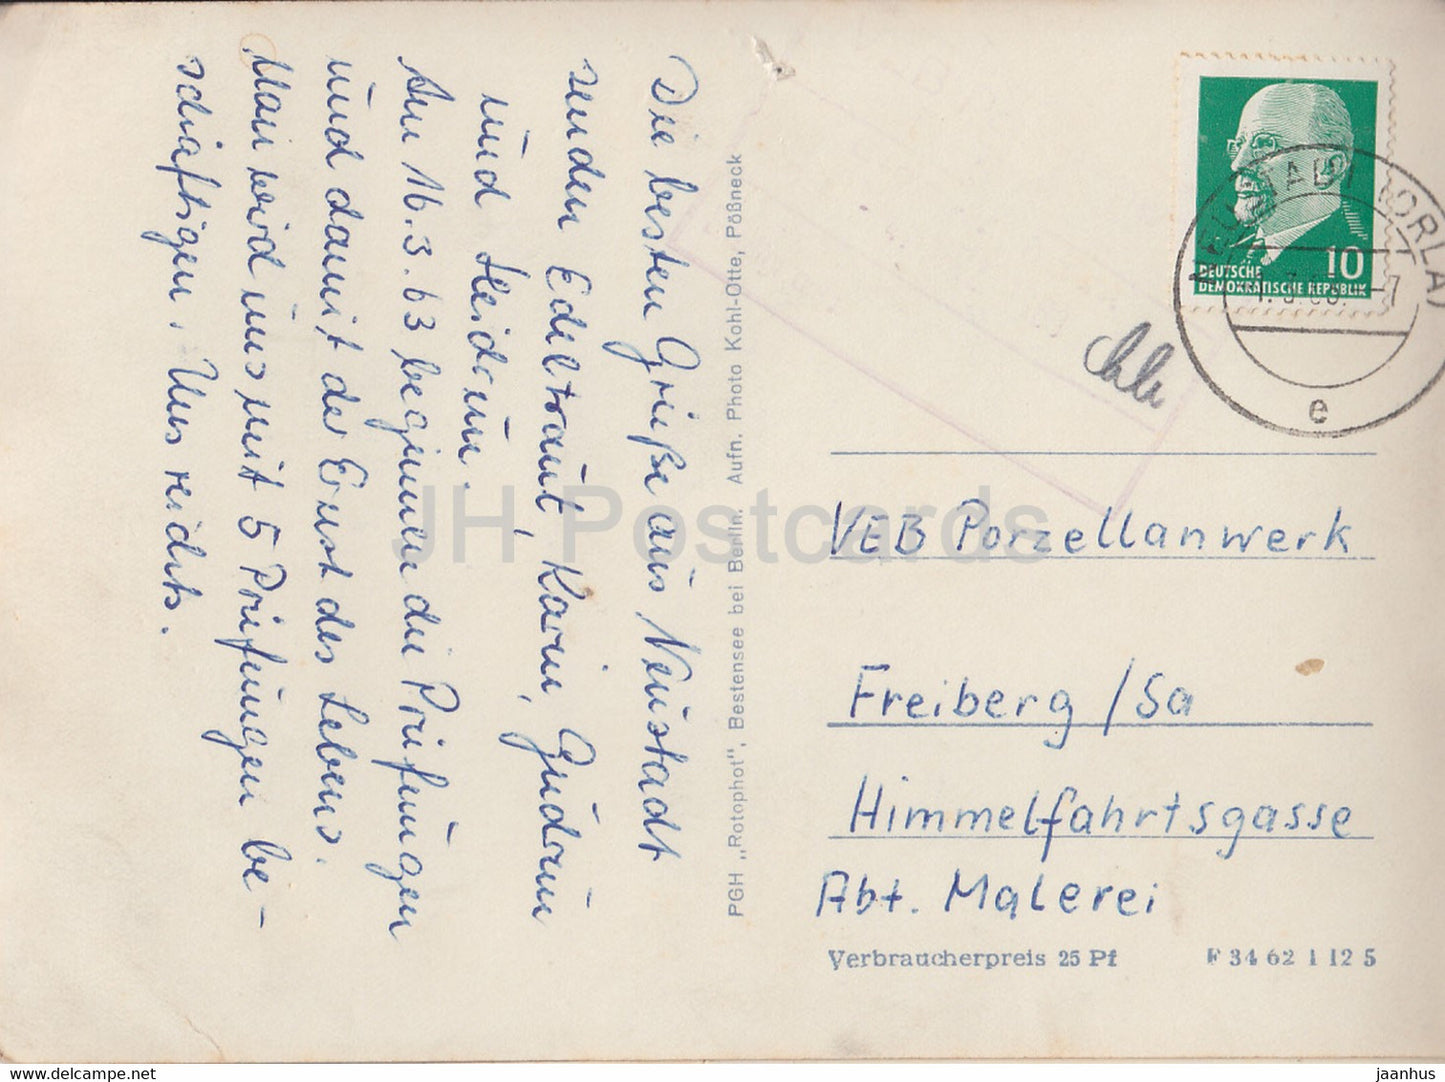 Die besten Grüße aus Neustadt
senden Edeltraut, Karin, Gudrun
und Heidrun.
Am 16.3.63 beginnen die Prüfungen
und damit der Ernst des Lebens.
Man wird uns mit 5 Prüfungen be-
schäftigen. Uns reichts.
PGH „Rotophot", Bestensee bei Berlin. Aufn. Photo Kohl-Otte, Pößneck
10
DEUTSCHE
DEMOKRATISCHE REPUBLIK
(ORLA)
e
VEB Porzellanwerk
Freiberg /Sa
Himmelfahrtsgasse
Abt. Malerei
Verbraucherpreis 25 Pf F 34 62 1 12 5
JH Postcards
jaanhus